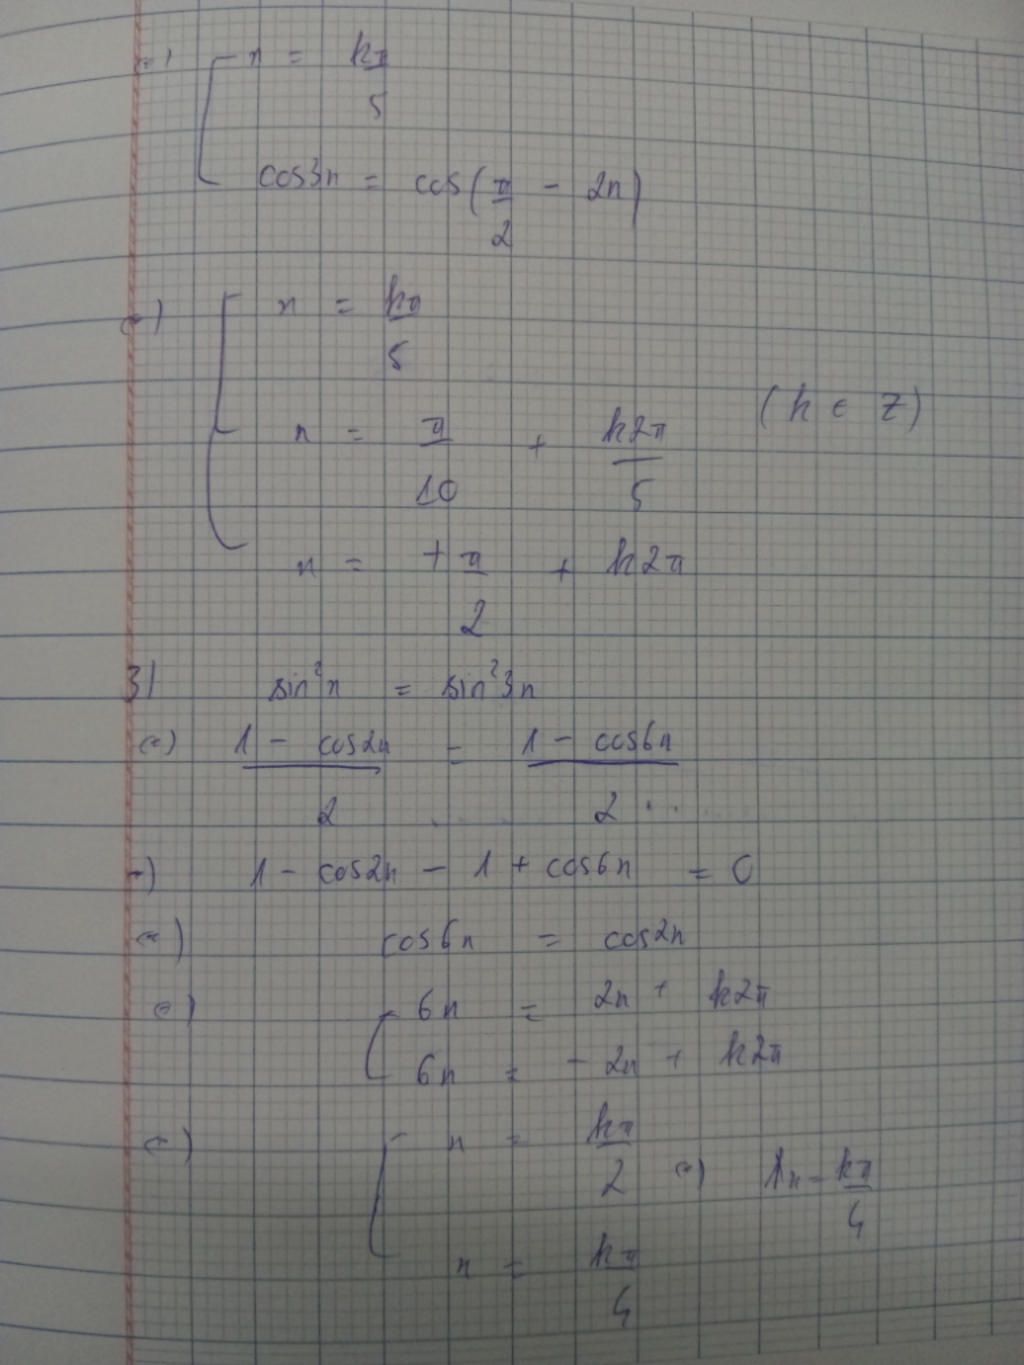 (=) [ x = kπ/5
cos3x = cos(π/2 - 2x)
(=) [ x = kπ/5
x = π/10 + k2π/5 (k ∈ Z)
x = +π/2 + k2π
3) sin²x = sin²3x
(=) 1 - cos2x/2 = 1 - cos6x/2
(=) 1 - cos2x - 1 + cos6x = 0
(=) cos6x = cos2x
(=) [ 6x = 2x + k2π
6x = -2x + k2π
(=) [ x = kπ/2 (=) x = kπ/4
x = kπ/4